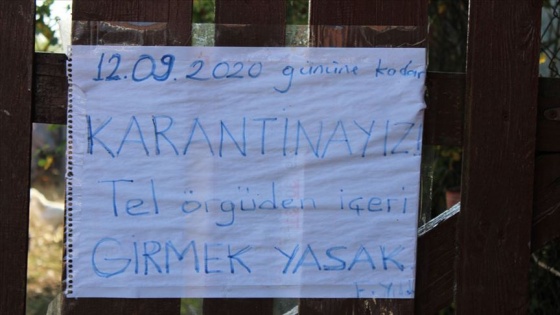 12.09.2020 gününe kadar
KARANTİNAYIZ!
Tel örgüden içeri
GİRMEK YASAK